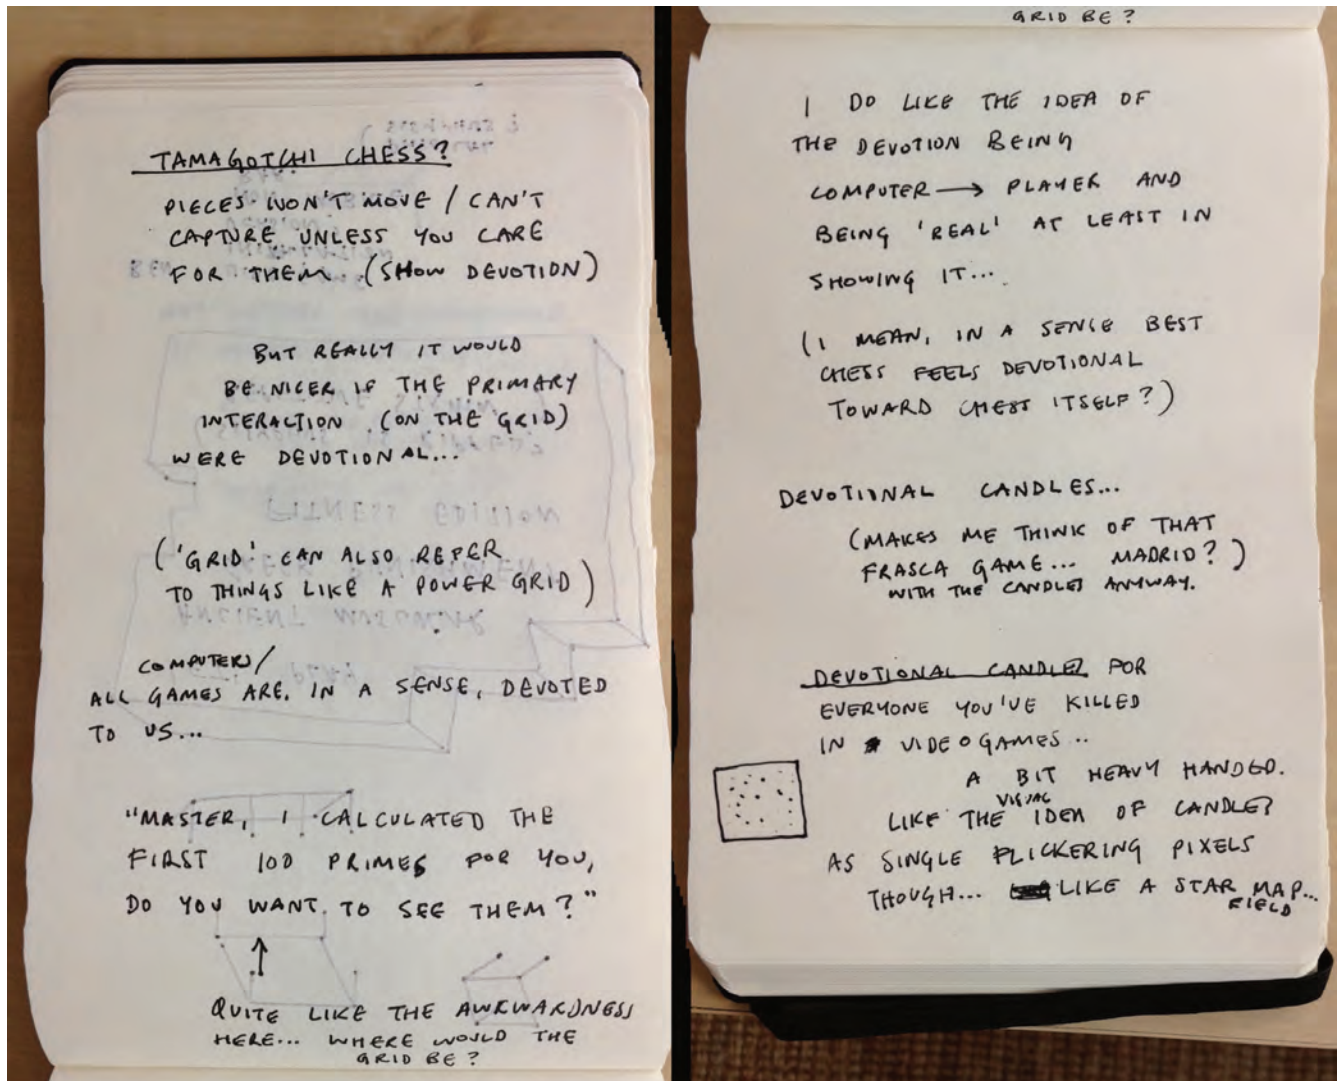 TAMAGOTCHI CHESS?
PIECES WON'T MOVE / CAN'T
CAPTURE UNLESS YOU CARE
FOR THEM... (SHOW DEVOTION)
BUT REALLY IT WOULD
BE NICER IF THE PRIMARY
INTERACTION (ON THE GRID)
WERE DEVOTIONAL...
('GRID' CAN ALSO REFER
TO THINGS LIKE A POWER GRID)
COMPUTERS/
ALL GAMES ARE, IN A SENSE, DEVOTED
TO US...
"MASTER, I CALCULATED THE
FIRST 100 PRIMES FOR YOU,
DO YOU WANT TO SEE THEM?"
QUITE LIKE THE AWKWARDNESS
HERE... WHERE WOULD THE
GRID BE?
GRID BE?
I DO LIKE THE IDEA OF
THE DEVOTION BEING
COMPUTER → PLAYER AND
BEING 'REAL' AT LEAST IN
SHOWING IT...
(I MEAN, IN A SENSE BEST
CHESS FEELS DEVOTIONAL
TOWARD CHESS ITSELF?)
DEVOTIONAL CANDLES...
(MAKES ME THINK OF THAT
FRASCA GAME... MADRID?)
WITH THE CANDLES ANYWAY.
DEVOTIONAL CANDLES FOR
EVERYONE YOU'VE KILLED
IN VIDEOGAMES..
A BIT HEAVY HANDED.
LIKE THE VISUAL IDEA OF CANDLES
AS SINGLE FLICKERING PIXELS
THOUGH... LIKE A STAR MAP...
FIELD